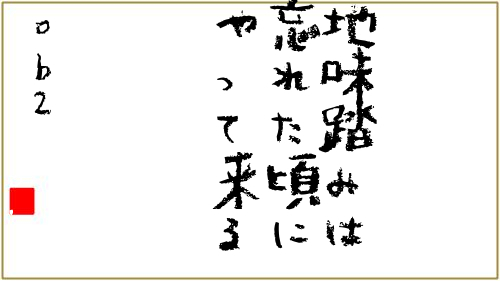 地味踏みは
忘れた頃に
やって来る
ob2